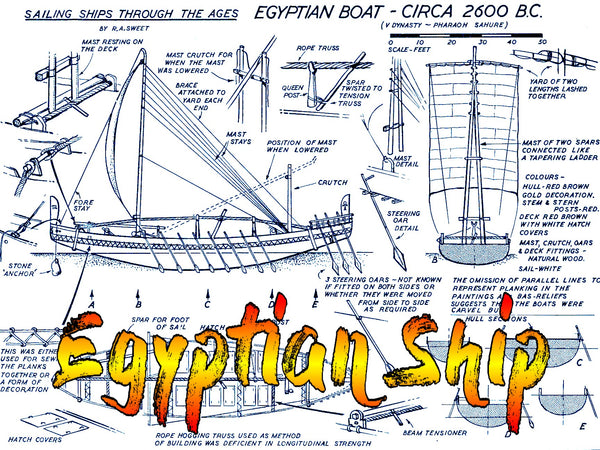 SAILING SHIPS THROUGH THE AGES
BY R.A. SWEET
EGYPTIAN BOAT - CIRCA 2600 B.C.
(V DYNASTY ~ PHARAOH SAHURE)
0 10 20 30 40 50
SCALE - FEET
MAST RESTING ON
THE DECK
MAST CRUTCH FOR
WHEN THE MAST
WAS LOWERED
BRACE
ATTACHED TO
YARD EACH
END
ROPE TRUSS
QUEEN
POST
SPAR
TWISTED TO
TENSION
TRUSS
YARD OF TWO
LENGTHS LASHED
TOGETHER.
MAST
STAYS
POSITION OF MAST
WHEN LOWERED
CRUTCH
MAST
DETAIL
MAST OF TWO SPARS
CONNECTED LIKE
A TAPERING LADDER
COLOURS -
HULL-RED BROWN
GOLD DECORATION.
STEM & STERN
POSTS-RED.
DECK RED BROWN
WITH WHITE HATCH
COVERS
MAST, CRUTCH, OARS
& DECK FITTINGS -
NATURAL WOOD.
SAIL-WHITE
FORE
STAY
STEERING
OAR
DETAIL
STONE
'ANCHOR'
A B C D E
B
3 STEERING OARS - NOT KNOWN
IF FITTED ON BOTH SIDES OR
WHETHER THEY WERE MOVED
FROM SIDE TO SIDE
AS REQUIRED
THE OMISSION OF PARALLEL LINES TO
REPRESENT PLANKING IN THE
PAINTINGS AND BAS-RELIEFS
SUGGESTS THE BOATS WERE
CARVEL
HULL SECTIONS
SPAR FOR FOOT
OF SAIL
HATCH
Egyptian Ship
THIS WAS EITHER
USED FOR
THE PLANKS
TOGETHER OR
A FORM OF
DECORATION
C
E
HATCH COVERS
ROPE HOGGING TRUSS USED AS METHOD
OF BUILDING WAS DEFICIENT IN LONGITUDINAL STRENGTH
BEAM TENSIONER